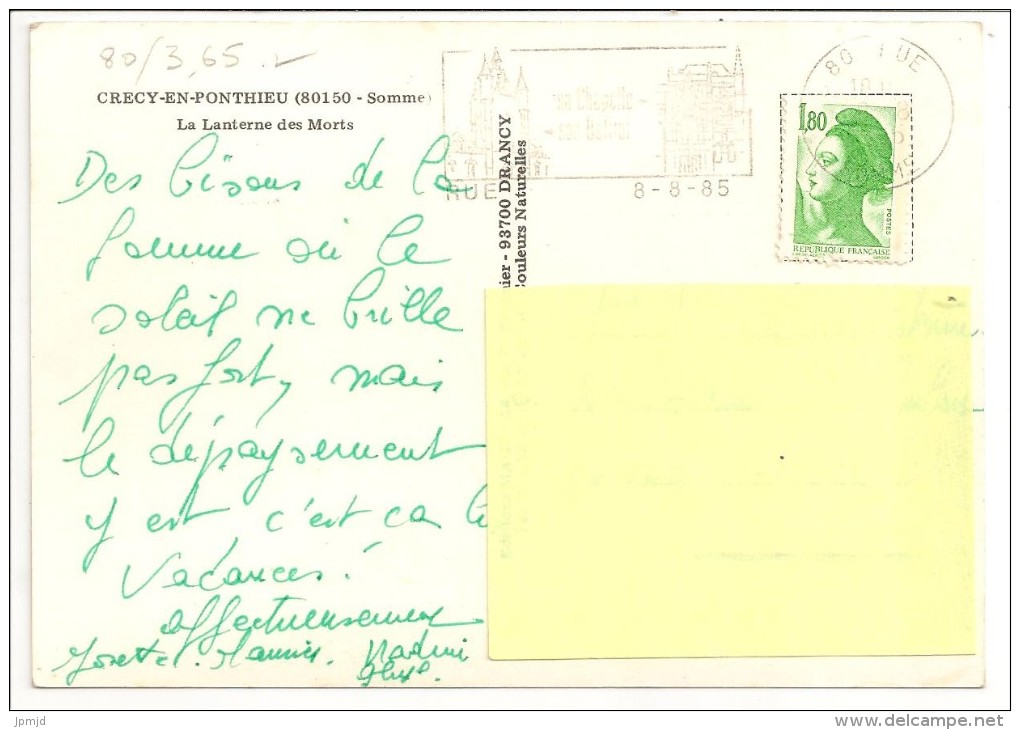 80/3,65
CRECY-EN-PONTHIEU (80150 - Somme)
La Lanterne des Morts
sa Chapelle -
- son Beffroi
RUE
8-8-85
80 RUE
1,80
POSTES
REPUBLIQUE FRANÇAISE
ier - 93700 DRANCY
Couleurs Naturelles
Des bisous de la
somme où le
soleil ne brille
pas fort, mais
le dépaysement
y est c'est ça le
vacances.
affectueusement
Josette.
jpmjd
www.delcampe.net